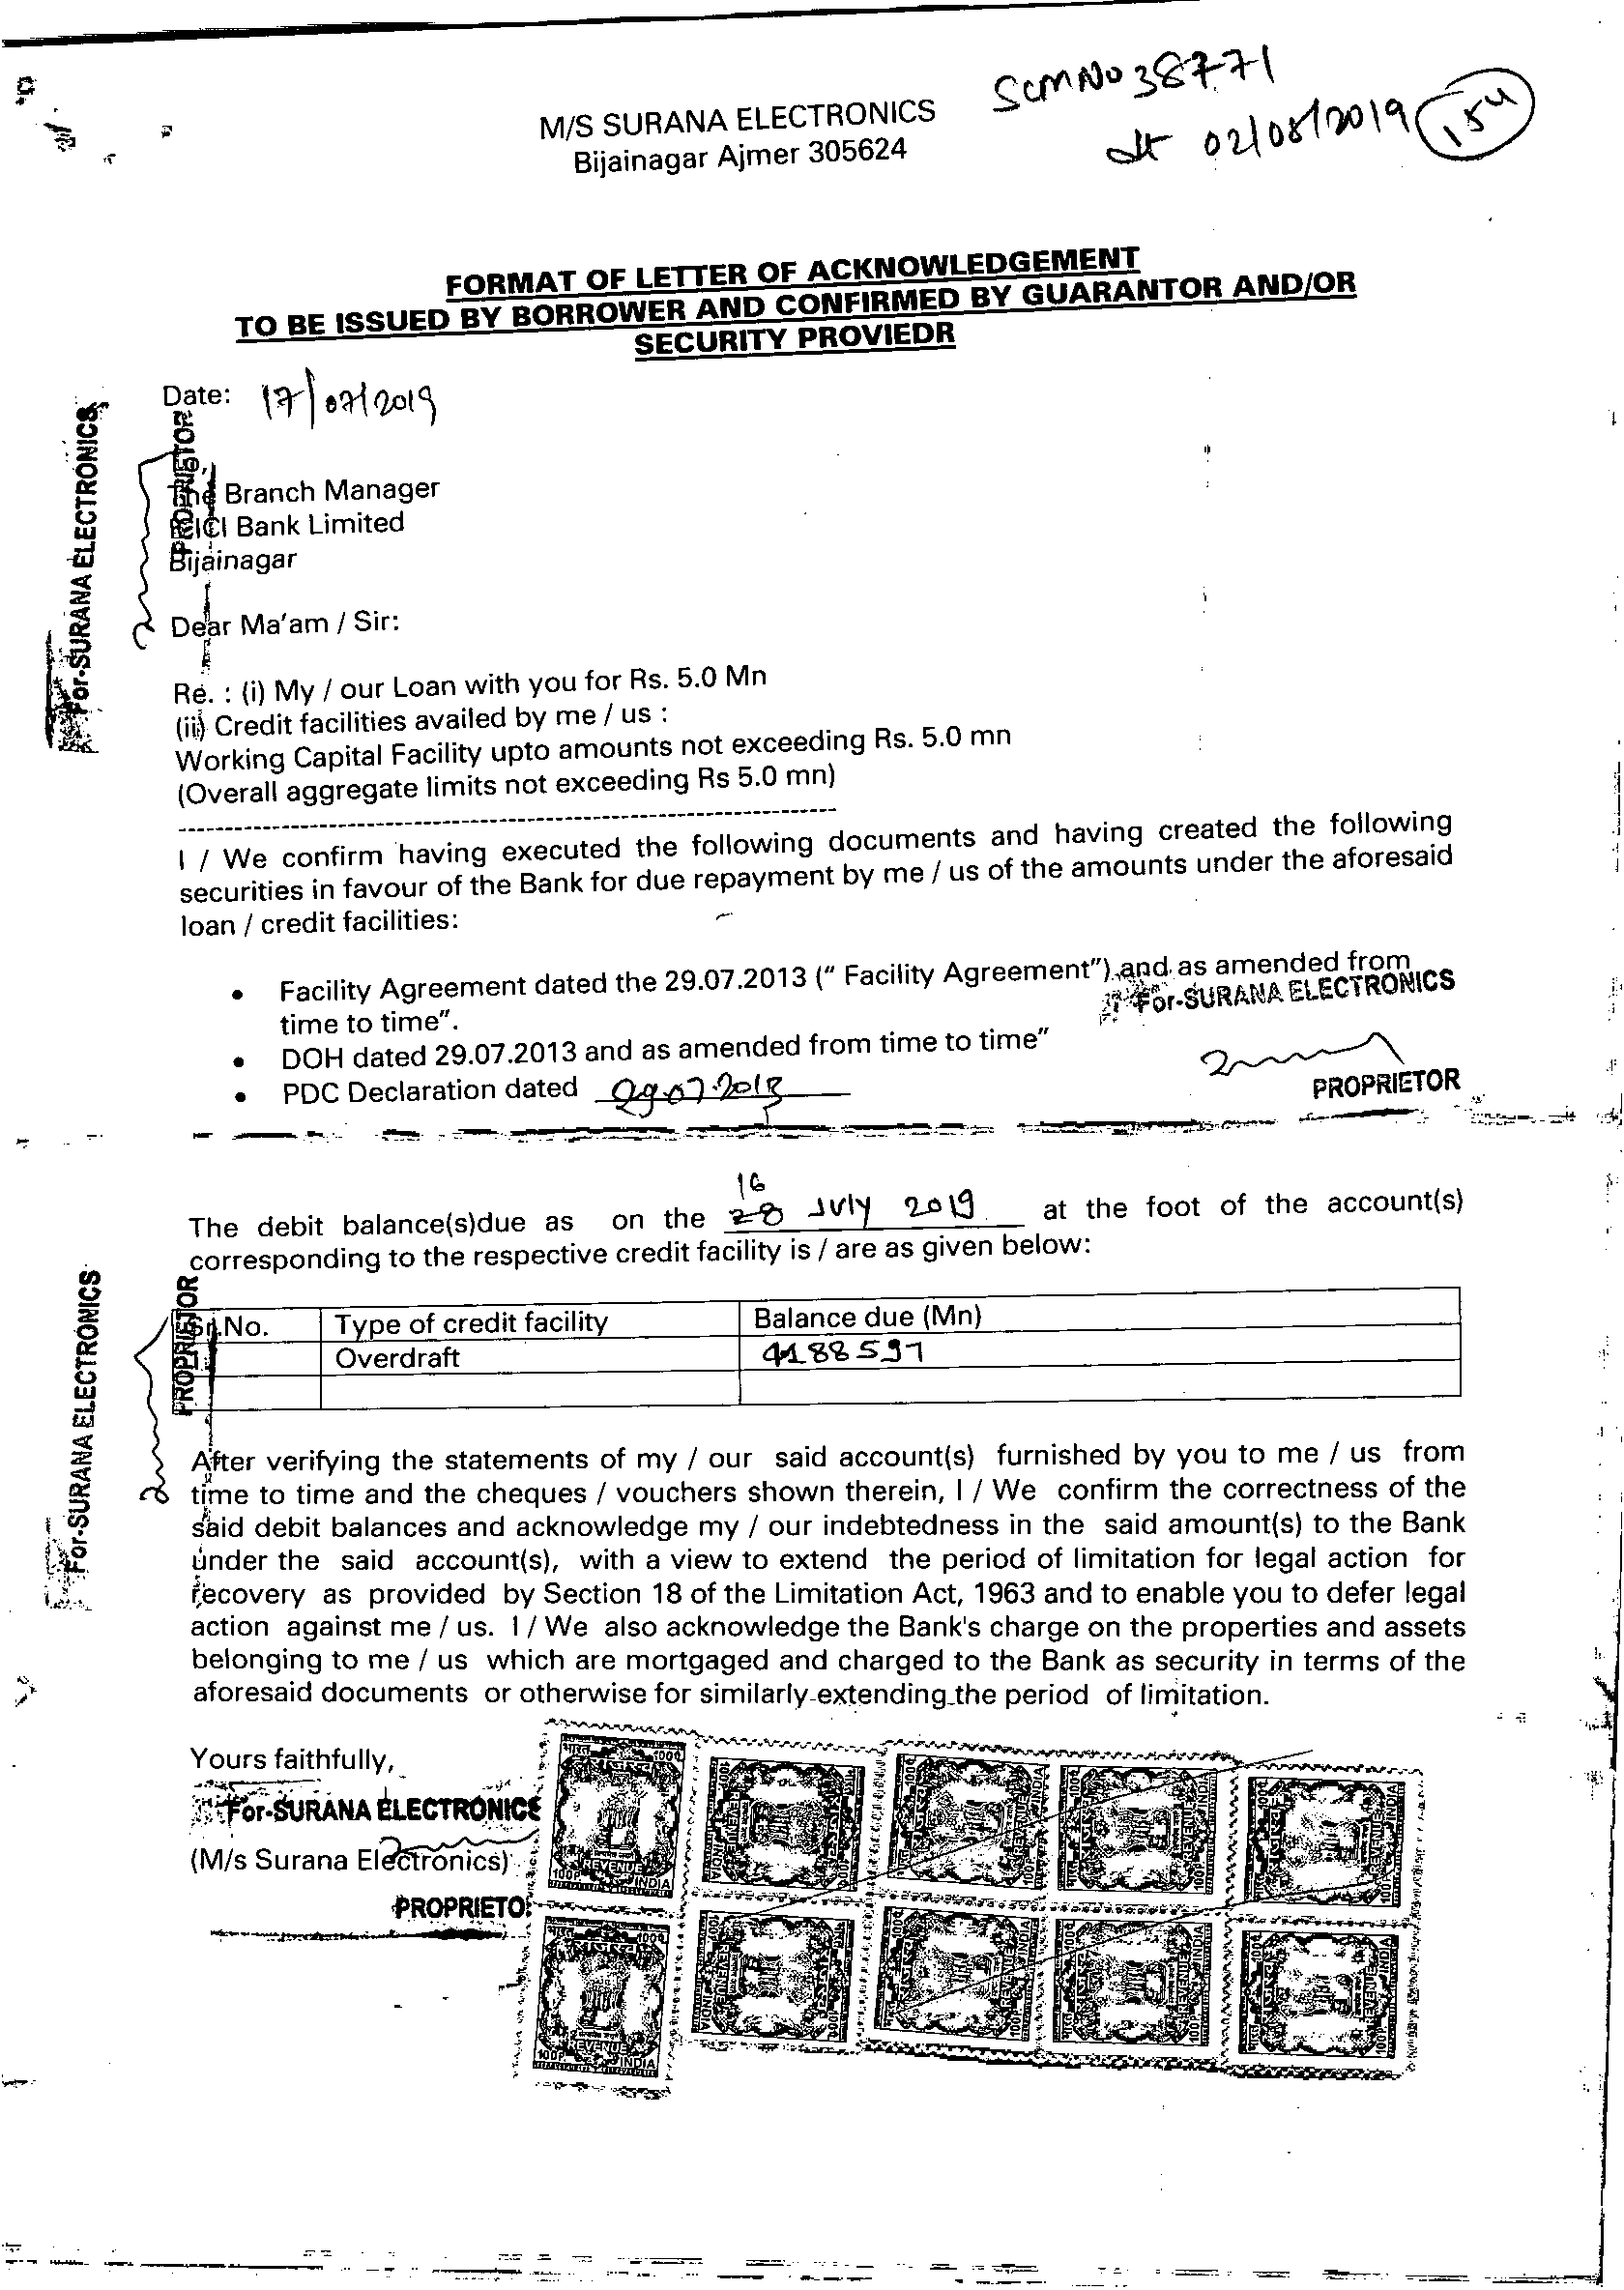 SCM NO 38771
dt 02/08/2019 154
M/S SURANA ELECTRONICS
Bijainagar Ajmer 305624
FORMAT OF LETTER OF ACKNOWLEDGEMENT
TO BE ISSUED BY BORROWER AND CONFIRMED BY GUARANTOR AND/OR
SECURITY PROVIEDR
Date: 17/07/2019
The Branch Manager
ICICI Bank Limited
Bijainagar
For-SURANA ELECTRONICS
PROPRIETOR
Dear Ma'am / Sir:
Re. : (i) My / our Loan with you for Rs. 5.0 Mn
(ii) Credit facilities availed by me / us :
Working Capital Facility upto amounts not exceeding Rs. 5.0 mn
(Overall aggregate limits not exceeding Rs 5.0 mn)
I / We confirm having executed the following documents and having created the following
securities in favour of the Bank for due repayment by me / us of the amounts under the aforesaid
loan / credit facilities:
• Facility Agreement dated the 29.07.2013 (“ Facility Agreement”) and as amended from
time to time”.
• DOH dated 29.07.2013 and as amended from time to time”
• PDC Declaration dated 29.07.2013
For-SURANA ELECTRONICS
PROPRIETOR
16
The debit balance(s)due as on the 28 July 2019 at the foot of the account(s)
corresponding to the respective credit facility is / are as given below:
Sr.No. Type of credit facility Balance due (Mn)
1 Overdraft 4188597
For-SURANA ELECTRONICS
PROPRIETOR
After verifying the statements of my / our said account(s) furnished by you to me / us from
time to time and the cheques / vouchers shown therein, I / We confirm the correctness of the
said debit balances and acknowledge my / our indebtedness in the said amount(s) to the Bank
under the said account(s), with a view to extend the period of limitation for legal action for
recovery as provided by Section 18 of the Limitation Act, 1963 and to enable you to defer legal
action against me / us. I / We also acknowledge the Bank's charge on the properties and assets
belonging to me / us which are mortgaged and charged to the Bank as security in terms of the
aforesaid documents or otherwise for similarly extending the period of limitation.
Yours faithfully,
For-SURANA ELECTRONICS
(M/s Surana Electronics)
PROPRIETOR
भारत 100P REVENUE INDIA